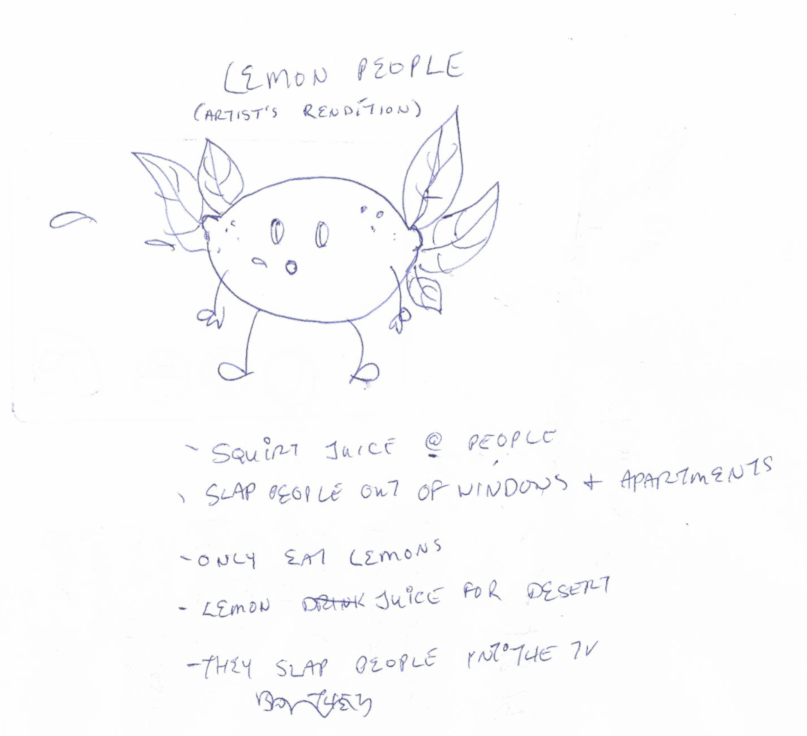 LEMON PEOPLE
(ARTIST'S RENDITION)
- SQUIRT JUICE @ PEOPLE
- SLAP PEOPLE OUT OF WINDOWS + APARTMENTS
- ONLY EAT LEMONS
- LEMON DRINK JUICE FOR DESERT
- THEY SLAP PEOPLE INTO THE TV